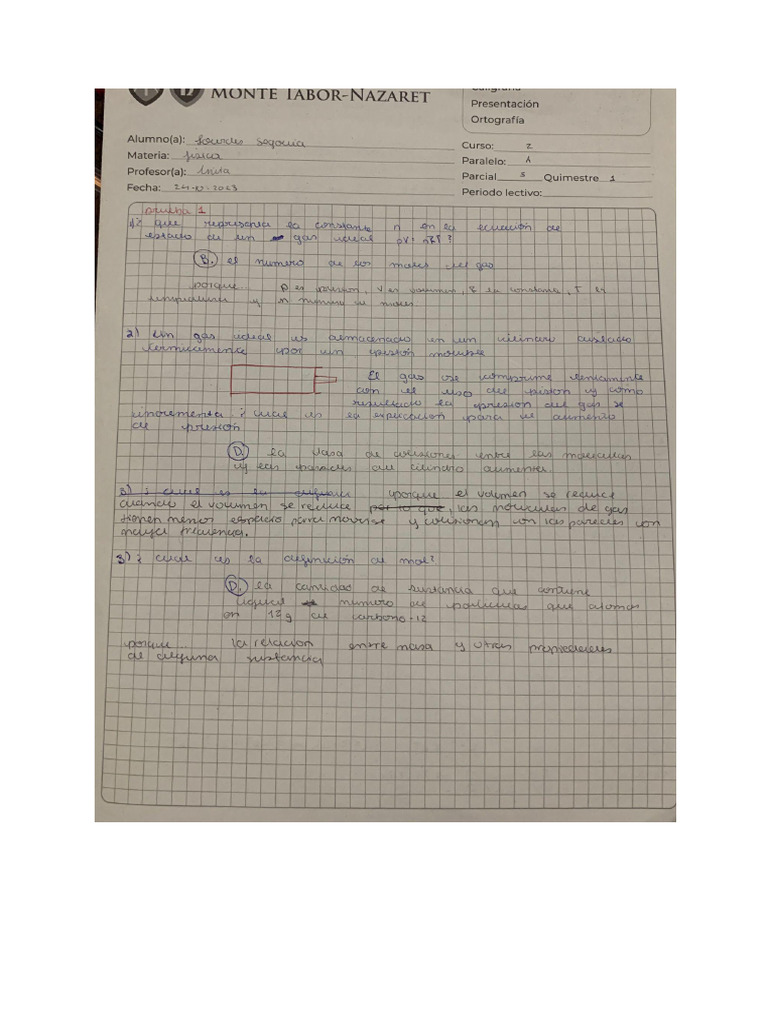 MONTE TABOR-NAZARET
Caligrafía
Presentación
Ortografía
Alumno(a): Lourdes Segovia
Materia: física
Profesor(a):
Fecha: 24-10-2023
Curso: 2
Paralelo: A
Parcial Quimestre 1
Periodo lectivo:
prueba 1
1)¿ que representa la constante n en la ecuación de
estado de un gas ideal pV= nRT?
B. el numero de los moles del gas
porque... p es presion, V es volumen, R la constante, T es
temperatura y n numero de moles.
2) Un gas ideal es almacenado en un cilindro aislado
termicamente por un piston movible
El gas se comprime lentamente
con el uso del piston y como
resultado la presion del gas se
incrementa ¿cual es la explicacion para el aumento
de presion
D. la tasa de colisiones entre las moleculas
y las paredes del cilindro aumenta.
3) ¿ cual es la porque el volumen se reduce
cuando el volumen se reduce por lo que, las moleculas de gas
tienen menor espacio para moverse y colisionan con las paredes con
mayor frecuencia.
3) ¿ cual es la definición de mol?
D. la cantidad de sustancia que contiene
igual numero de particulas que atomos
en 12g de carbono-12
porque... la relacion entre masa y otras propiedades
de alguna sustancia